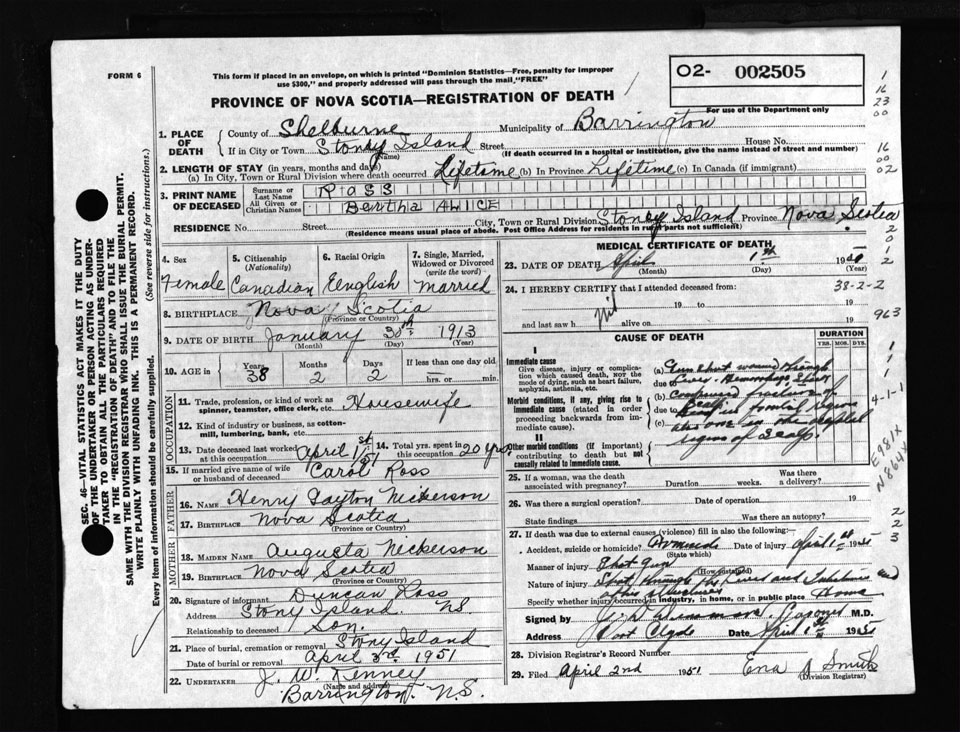 FORM 6
This form if placed in an envelope, on which is printed "Dominion Statistics—Free, penalty for improper
use $300," and properly addressed will pass through the mail, "FREE"
02- 002505
For use of the Department only
PROVINCE OF NOVA SCOTIA—REGISTRATION OF DEATH
1. PLACE OF DEATH
County of Shelburne Municipality of Barrington
If in City or Town Stoney Island Street House No.
(Name) (If death occurred in a hospital or institution, give the name instead of street and number)
2. LENGTH OF STAY (in years, months and days)
(a) In City, Town or Rural Division where death occurred Lifetime (b) In Province Lifetime (c) In Canada (if immigrant)
3. PRINT NAME OF DECEASED
Surname or Last Name ROSS
All Given or Christian Names Bertha ALICE
RESIDENCE No. Street City, Town or Rural Division Stoney Island Province Nova Scotia
(Residence means usual place of abode. Post Office Address for residents in rural parts not sufficient)
4. Sex Female
5. Citizenship (Nationality) Canadian
6. Racial Origin Eenglish
7. Single, Married, Widowed or Divorced (write the word) Married
8. BIRTHPLACE Nova Scotia
(Province or Country)
9. DATE OF BIRTH January 30th 1913
(Month) (Day) (Year)
10. AGE in Years 38 Months 2 Days 2 If less than one day old hrs. or min.
OCCUPATION
11. Trade, profession, or kind of work as spinner, teamster, office clerk, etc. Housewife
12. Kind of industry or business, as cotton-mill, lumbering, bank, etc.
13. Date deceased last worked at this occupation April 1st 51
14. Total yrs. spent in this occupation 20 yrs.
15. If married give name of wife or husband of deceased Carol Ross
FATHER
16. NAME Henry Nickerson
17. BIRTHPLACE Nova Scotia
(Province or Country)
MOTHER
18. MAIDEN NAME Augusta Nickerson
19. BIRTHPLACE Nova Scotia
(Province or Country)
20. Signature of informant Duncan Ross
Address Stony Island N.S.
Relationship to deceased Son.
21. Place of burial, cremation or removal Stony Island
Date of burial or removal April 3rd 1951
22. UNDERTAKER J. W. Kenney
(Name and address)
Barrington, N.S.
MEDICAL CERTIFICATE OF DEATH
23. DATE OF DEATH April 1st 19
(Month) (Day) (Year)
24. I HEREBY CERTIFY that I attended deceased from: 38-2-2
Nil 19 to 19
and last saw h alive on 19
CAUSE OF DEATH
DURATION
YRS. MOS. DYS.
I
Immediate cause
Give disease, injury or complication which caused death, not the mode of dying, such as heart failure, asphyxia, asthenia, etc.
(a) Gun shot wound through
due to liver. Hemorrhage
Morbid conditions, if any, giving rise to immediate cause (stated in order proceeding backwards from immediate).
(b) compound fracture of
due to
(c)
II
Other morbid conditions (if important) contributing to death but not causally related to immediate cause.
25. If a woman, was the death associated with pregnancy? Duration weeks. Was there a delivery?
26. Was there a surgical operation? Date of operation 19
State findings Was there an autopsy?
27. If death was due to external causes (violence) fill in also the following:
Accident, suicide or homicide? Date of injury April 1st 1951
(State which)
Manner of injury Shot gun
(How sustained)
Nature of injury Shot through the liver and
Specify whether injury occurred in industry, in home, or in public place Home
Signed by M.D.
Address Port Clyde Date April 1st 1951
28. Division Registrar's Record Number
29. Filed April 2nd 1951 Ena A Smith
(Division Registrar)
SEC. 46—VITAL STATISTICS ACT MAKES IT THE DUTY
OF THE UNDERTAKER OR PERSON ACTING AS UNDER-
TAKER TO OBTAIN ALL THE PARTICULARS REQUIRED
IN THE "REGISTRATION OF DEATH" AND TO FILE THE
SAME WITH THE DIVISION REGISTRAR WHO SHALL ISSUE THE BURIAL PERMIT.
WRITE PLAINLY WITH UNFADING INK. THIS IS A PERMANENT RECORD.
Every item of information should be carefully supplied. (See reverse side for instructions.)
1
16
23
00
16
00
02
2
0
1
2
963
1
1
1
4-1-1
E981X
N864X
2
2
3